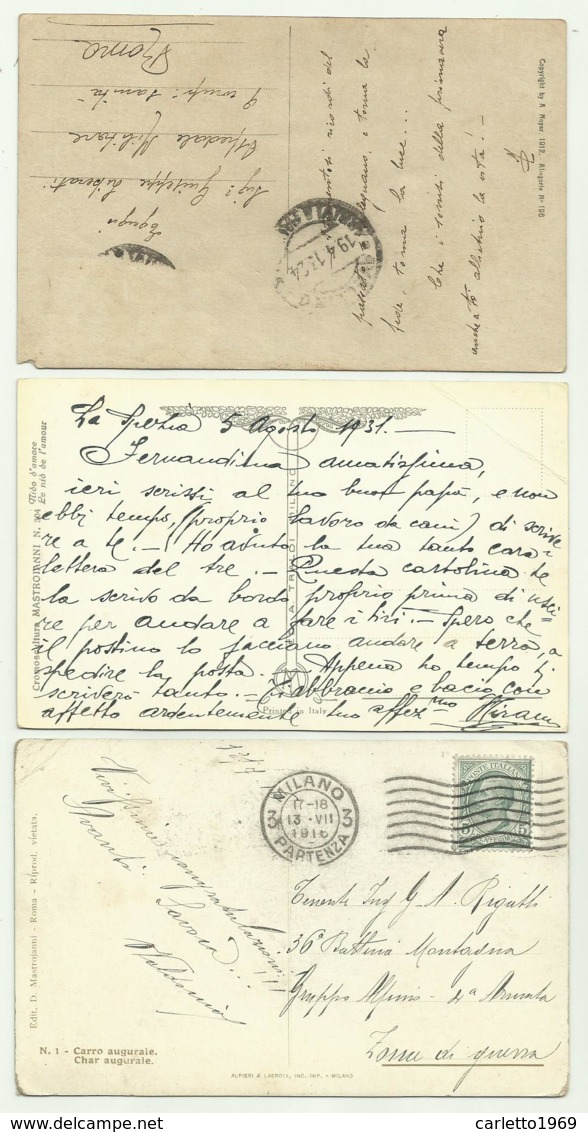 Copyright by A. Mayer. 1912.
Sig. Giuseppe Liberati
Ospedale Militare
Roma
19 4 13 24
ricordi del
torna la
torna la luce...
Che i sorrisi della primavera
la vita! -
La Spezia 5 Agosto 1931. -
Fernandina amatissima,
ieri scrissi al tuo buon papà, e non
ebbi tempo, (proprio lavoro da cani) di scrive
re a te. - Ho avuto la tua tanto cara
lettera del tre. - Questa cartolina te
la scrivo da bordo proprio prima di usci
re per andare a fare i tiri. - Spero che
il postino lo facciano andare a terra a
spedire la posta. - Appena ho tempo ti
scriverò tanto. - Ti abbraccio e bacio con
affetto ardentemente tuo affez.mo Hiram
Cromoscultura MASTROIANNI N. 304 Nido d'amore
Le nid de l'amour
MILANO
Printed in Italy
12/7
MILANO
17-18
3 13 · VII 3
1916
PARTENZA
POSTE ITALIANE
5 5
Vivissime congratulazioni!!
Avanti Savoia...
Tenente Ing G. A. Rigatti
36ª Batteria Montagna
Gruppo Alpini - 4ª Armata
Zona di guerra
Edit. D. Mastroianni - Roma - Riprod. vietata.
N. 1 - Carro augurale.
Char augurale.
ALFIERI & LACROIX, INC. IMP. - MILANO
carletto1969